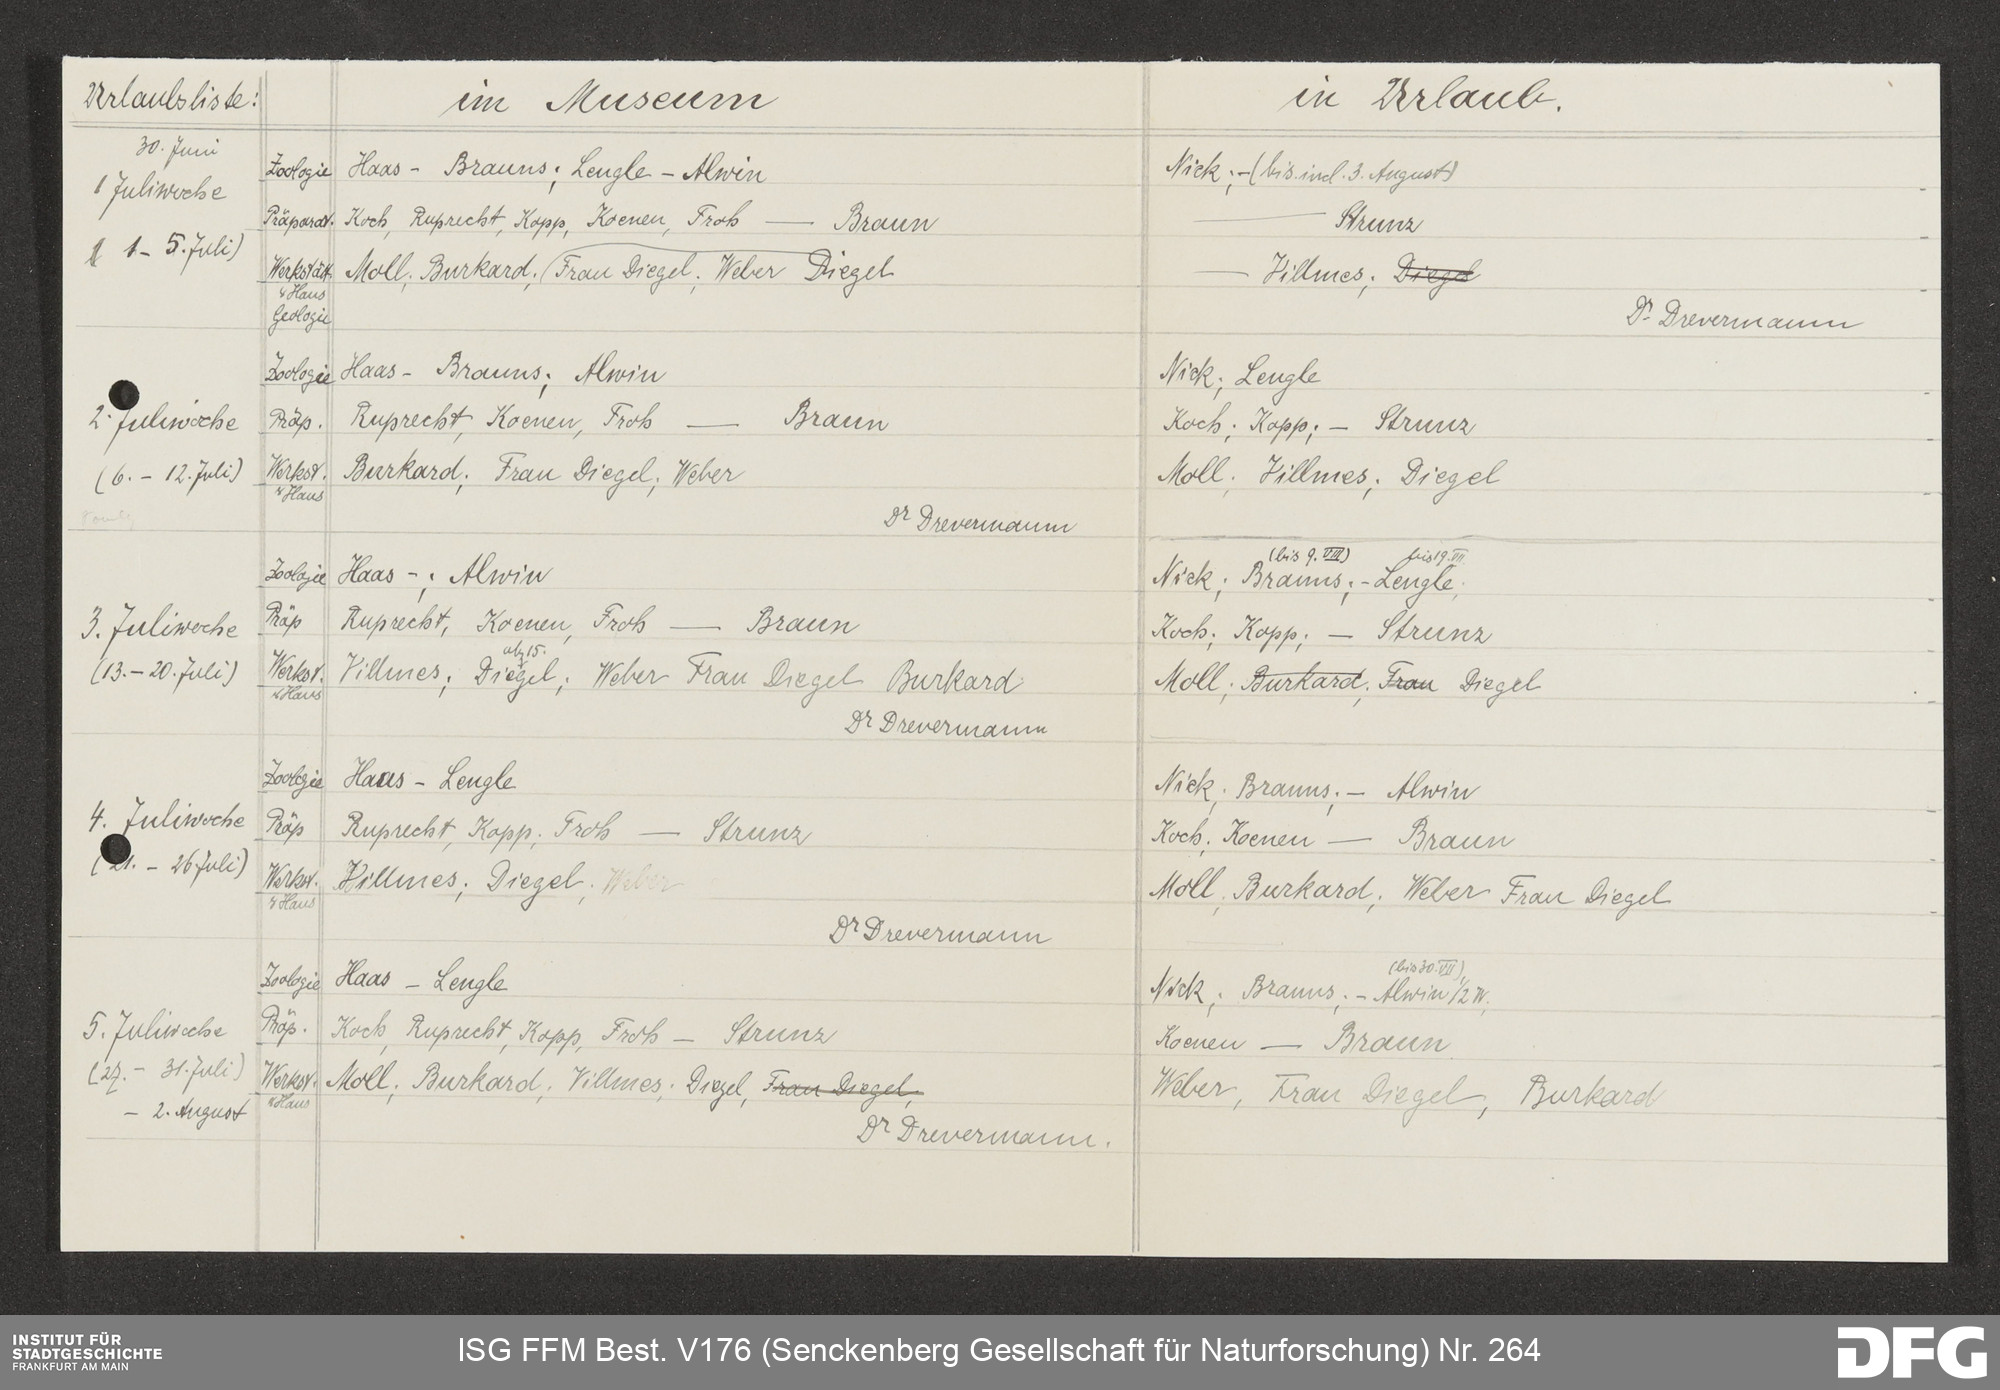 Urlaubsliste: im Museum in Urlaub.
30. Juni
1 Juliwoche Zoologie Haas - Brauns; Lengle - Alwin Nick; - (bis incl. 3. August)
Präparat. Koch, Ruprecht, Kopp, Koenen, Froh — Braun — Strunz
1 - 5. Juli) Werkstätt. Moll; Burkard; (Frau Diegel; Weber Diegel — Villmes; Diegel
& Haus
Geologie Dr Drevermann
Zoologie Haas - Brauns; Alwin Nick; Lengle
2. Juliwoche Präp. Ruprecht, Koenen, Froh — Braun Koch; Kopp; — Strunz
(6. - 12. Juli) Werkst. Burkard; Frau Diegel; Weber Moll; Villmes; Diegel
& Haus
Dr Drevermann
(bis 9. VIII) bis 19. VII
Zoologie Haas - ; Alwin Nick; Brauns; - Lengle;
3. Juliwoche Präp Ruprecht, Koenen, Froh — Braun Koch; Kopp; — Strunz
ab 15.
(13. - 20. Juli) Werkst. Villmes; Diegel; Weber Frau Diegel Burkard Moll; Burkard; Frau Diegel
& Haus
Dr Drevermann
Zoologie Haas - Lengle Nick; Brauns; - Alwin
4. Juliwoche Präp Ruprecht, Kopp; Froh — Strunz Koch; Koenen — Braun
(21. - 26 Juli) Werkst. Villmes; Diegel; Weber Moll; Burkard; Weber Frau Diegel
& Haus
Dr Drevermann
(bis 30. VII)
Zoologie Haas - Lengle Nick; Brauns; - Alwin 1/2 W;
5. Juliwoche Präp. Koch, Ruprecht, Kopp, Froh - Strunz Koenen — Braun
(27. - 31. Juli) Werkst. Moll; Burkard; Villmes; Diegel, Frau Diegel, Weber, Frau Diegel, Burkard
& Haus
- 2. August
Dr Drevermann.
INSTITUT FÜR
STADTGESCHICHTE
FRANKFURT AM MAIN
ISG FFM Best. V176 (Senckenberg Gesellschaft für Naturforschung) Nr. 264
DFG